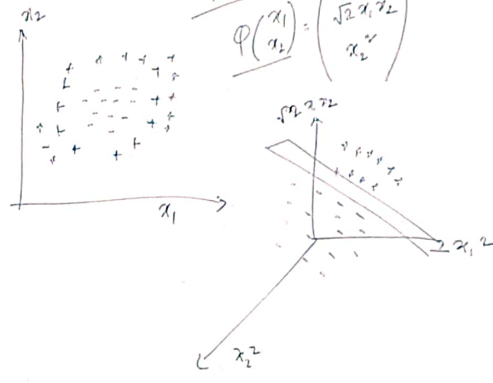 x₂
φ(x₁ x₂) = (√2 x₁ x₂
x₂²)
x₁
√2 x x₂
x₁²
x₂²